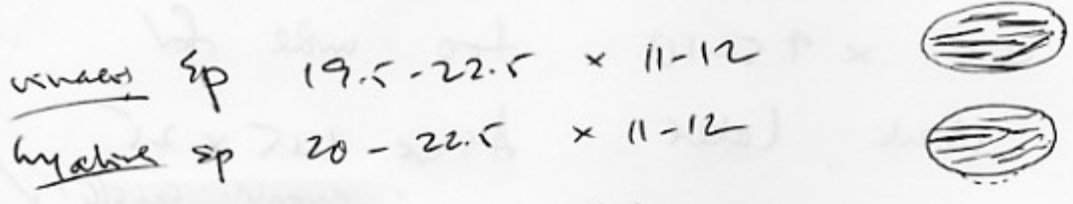 vinaceous sp 19.5-22.5 × 11-12
hyaline sp 20-22.5 × 11-12